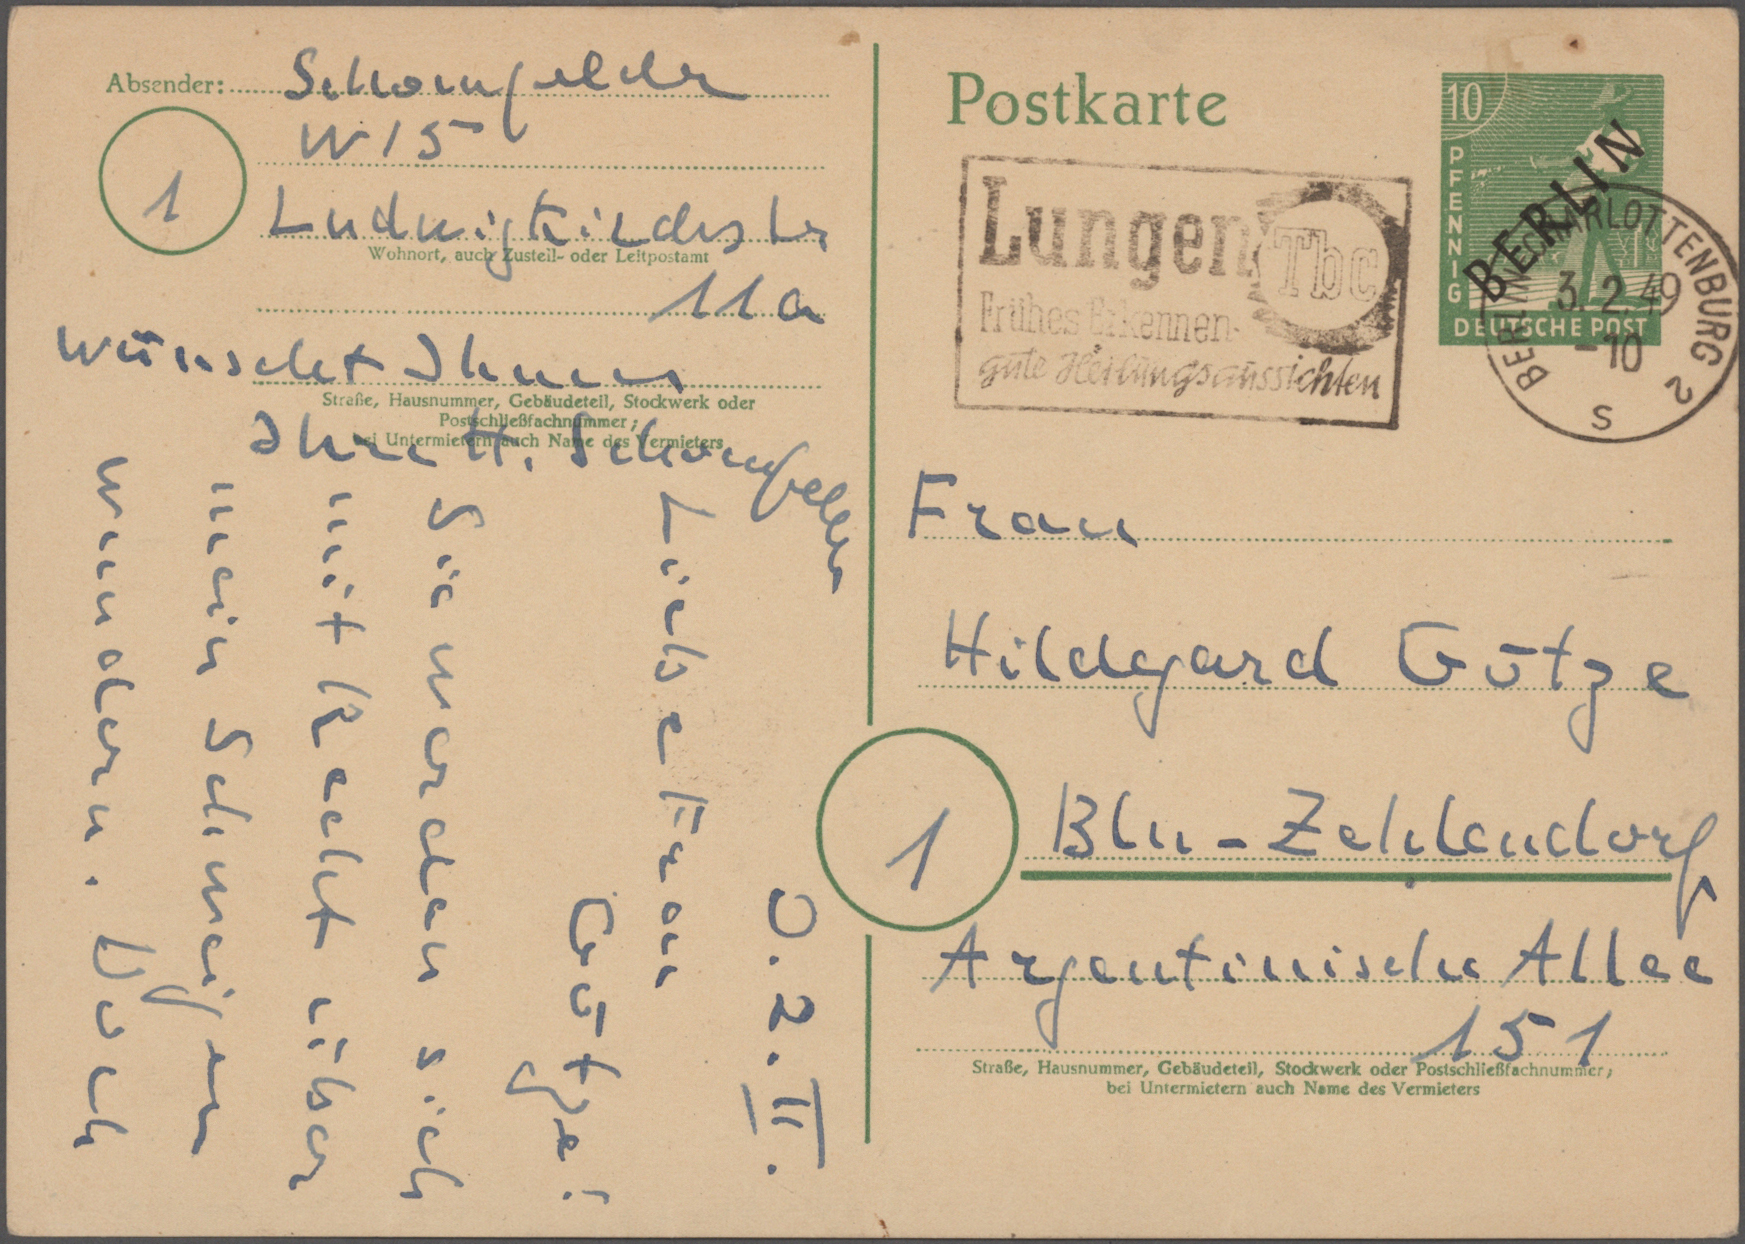 Absender: Schomfelder
W15
1
Ludwigkirchstr
Wohnort, auch Zustell- oder Leitpostamt
11a
wünscht Ihnen
Straße, Hausnummer, Gebäudeteil, Stockwerk oder
Postschließfachnummer;
bei Untermietern auch Name des Vermieters
Ihre H. Schomfelder
O. 2. II.
Liebe Frau
Götze!
Sie werden sich
mit Recht über
mein Schweigen
wundern. Doch
Postkarte
10
PFENNIG
DEUTSCHE POST
BERLIN
BERLIN-CHARLOTTENBURG 2
3.2.49
-10
S
Lungen Tbc
Frühes Erkennen-
gute Heilungsaussichten
Frau
Hildgard Götze
1
Bln-Zehlendorf
Argentinische Allee
151
Straße, Hausnummer, Gebäudeteil, Stockwerk oder Postschließfachnummer;
bei Untermietern auch Name des Vermieters